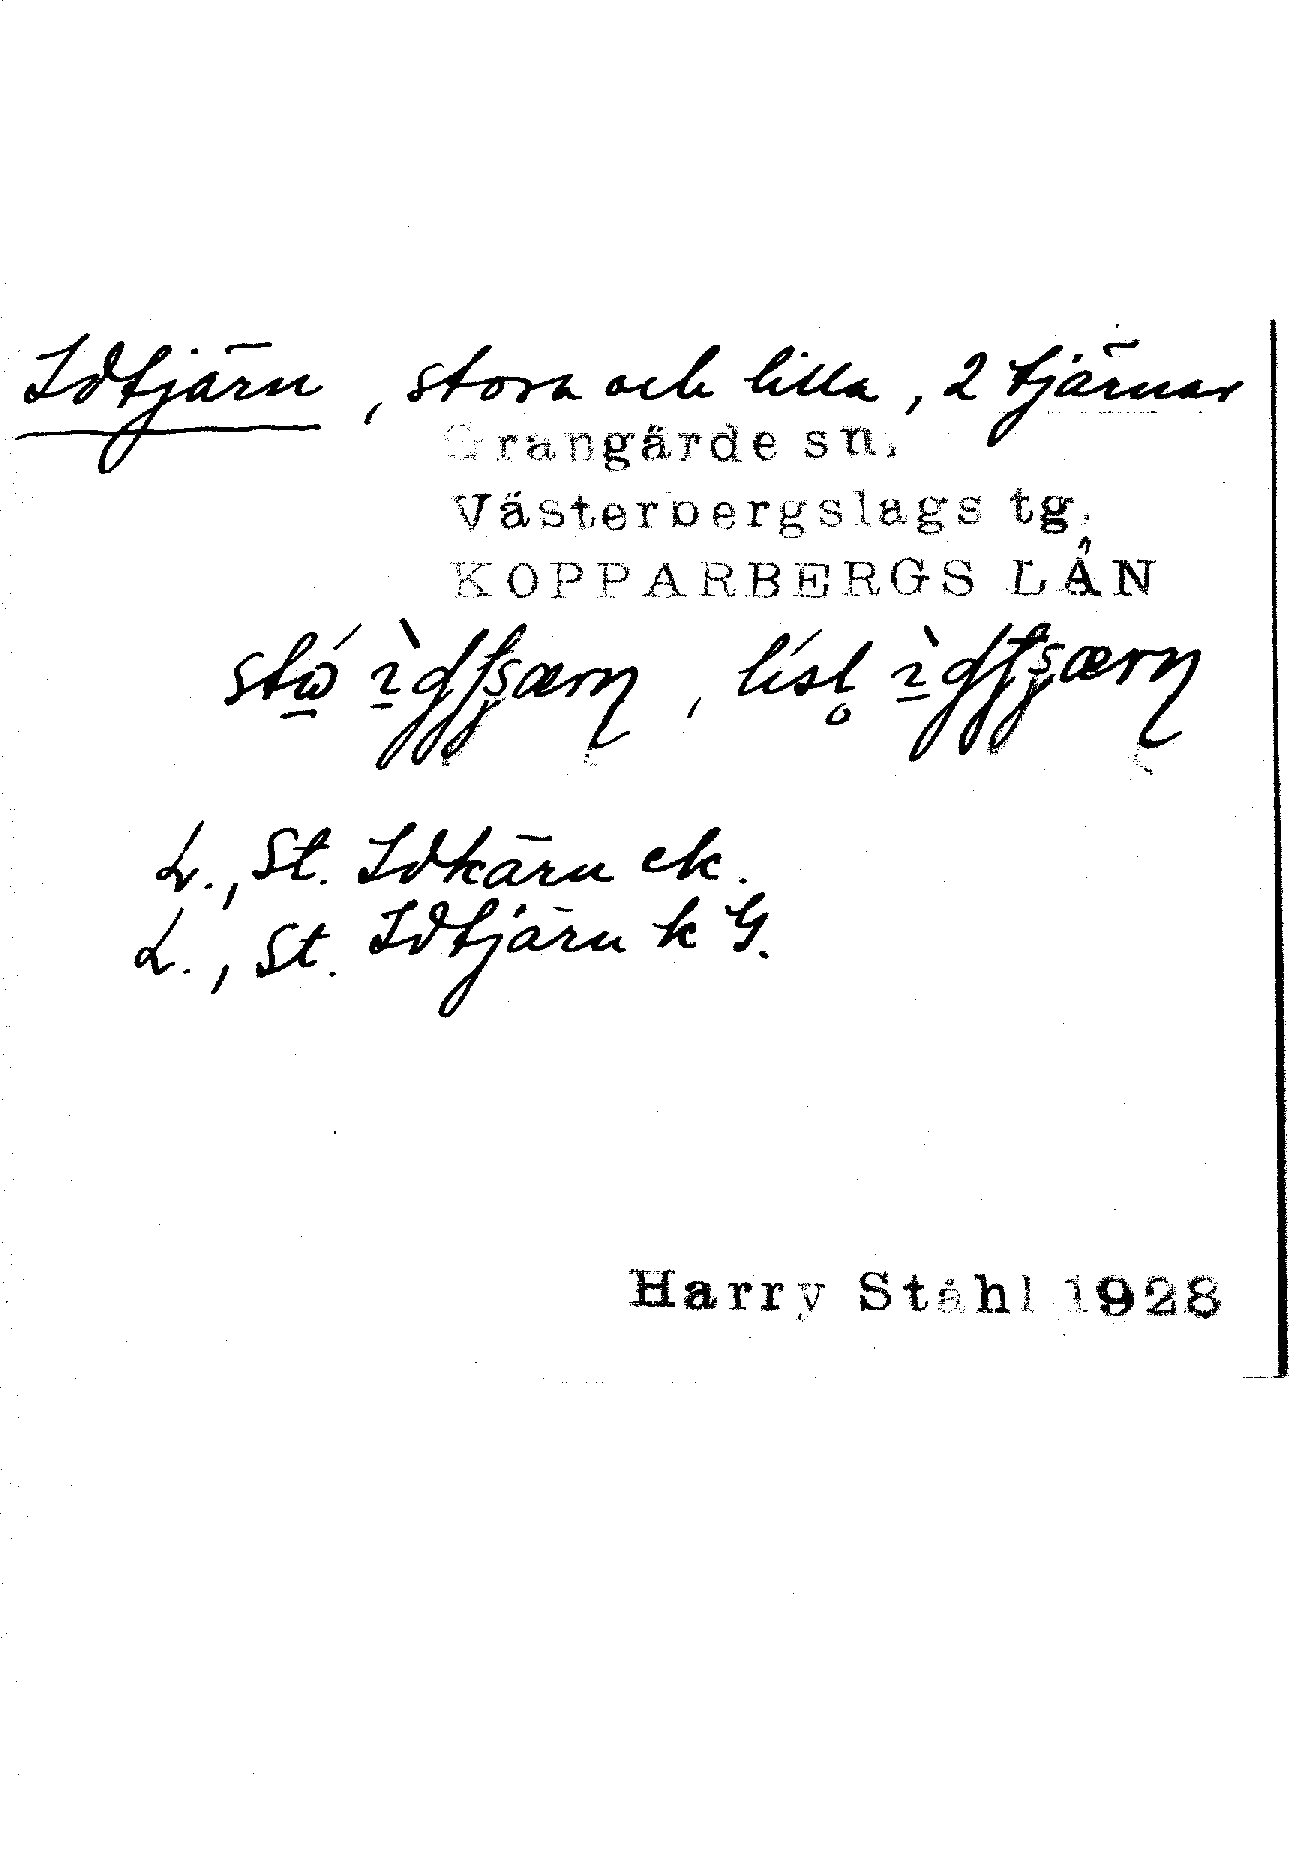 Idtjärn, stora och lilla, 2 tjärnar
Grangärde sn.
Västerbergslags tg.
KOPPARBERGS LÄN
L., St. Idkärn ek.
L., St. Idtjärn k G.
Harry Ståhl 1928